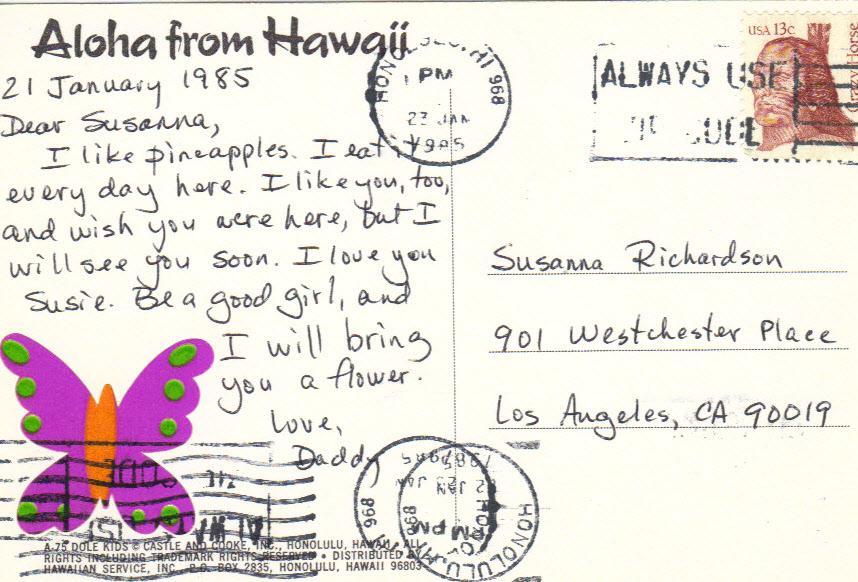 Aloha from Hawaii
21 January 1985
Dear Susanna,
I like pineapples. I eat it
every day here. I like you, too,
and wish you were here, but I
will see you soon. I love you
Susie. Be a good girl, and
I will bring
you a flower.
Love,
Daddy
HONOLULU, HI 968
PM
23 JAN
1985
ALWAYS USE
ZIP CODE
USA 13c
Crazy Horse
Susanna Richardson
901 Westchester Place
Los Angeles, CA 90019
HONOLULU, HI 968
PM
JAN
1985
A-75 DOLE KIDS © CASTLE AND COOKE, INC., HONOLULU, HAWAII. ALL
RIGHTS INCLUDING TRADEMARK RIGHTS RESERVED • DISTRIBUTED BY
HAWAIIAN SERVICE, INC., P.O. BOX 2835, HONOLULU, HAWAII 96803